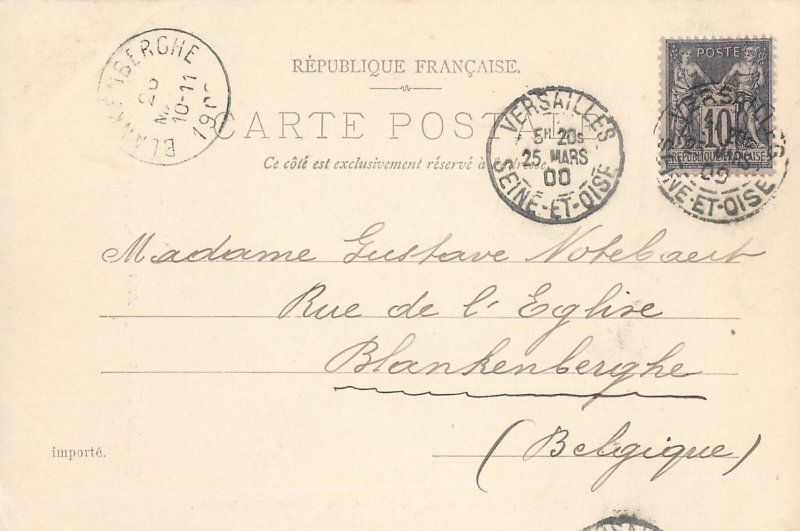 RÉPUBLIQUE FRANÇAISE.
CARTE POSTA
Ce côté est exclusivement réservé à
BLANKENBERGHE
10-11
VERSAILLES
5H 20s
25 MARS
00
SEINE-ET-OISE
POSTE
10
REPUBLIQUE FRANÇAISE
VERSAILLES
00
SEINE-ET-OISE
Madame Gustave Notebaert
Rue de l'Eglise
Blankenberghe
(Belgique)
importé.